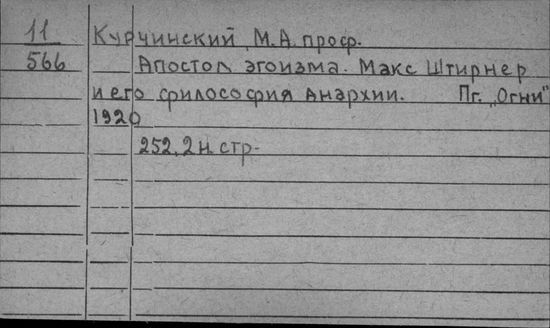 11 Курчинский, М.А. проф.
566 Апостол эгоизма. Макс Штирнер
и его философия анархии. Пг. „Огни"
1920
252, 2 н. стр.